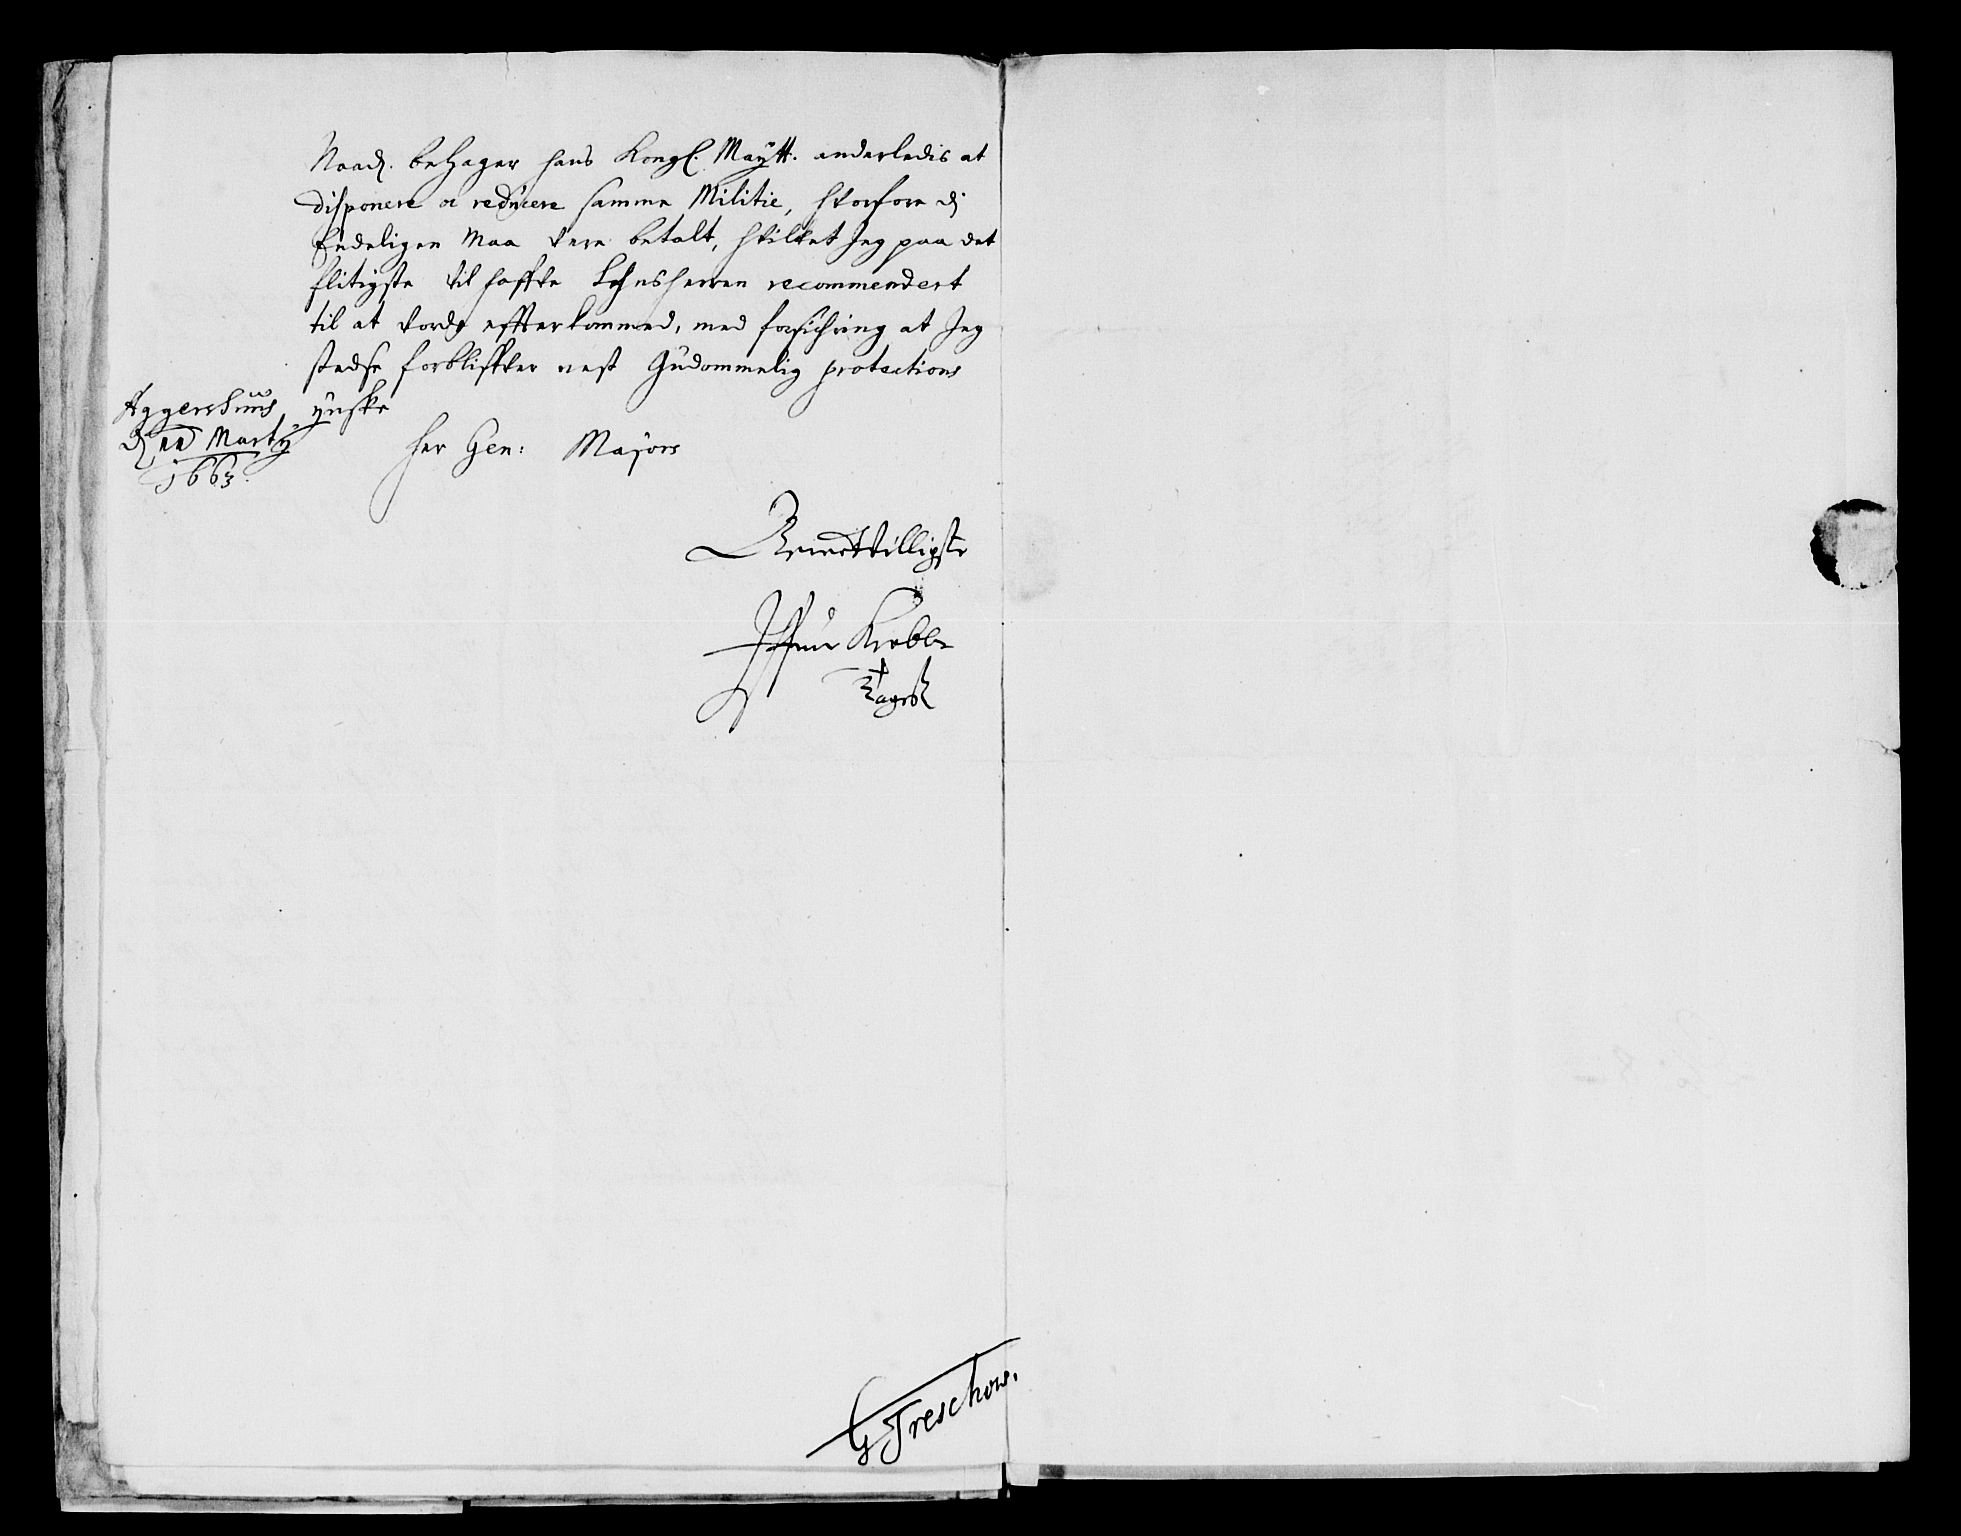 Naad. behager hans Kongl. Maÿtt. anderledis at
disponere oc reducere samme Militie, hvorfore di
Endeligen Maa vere betalt, hvilket Jeg paa det
flitigste vil haffve Lehnsherren recommendert
til at vorde effterkommed, med forsichring at Jeg
stedse forbliffver nest Gudommelig protections
ÿnske
Aggershuus,
d. Martÿ
1663.
Her Gen: Majors
villigste
Iffuer Krabbe
Tagesz
G Treschow.